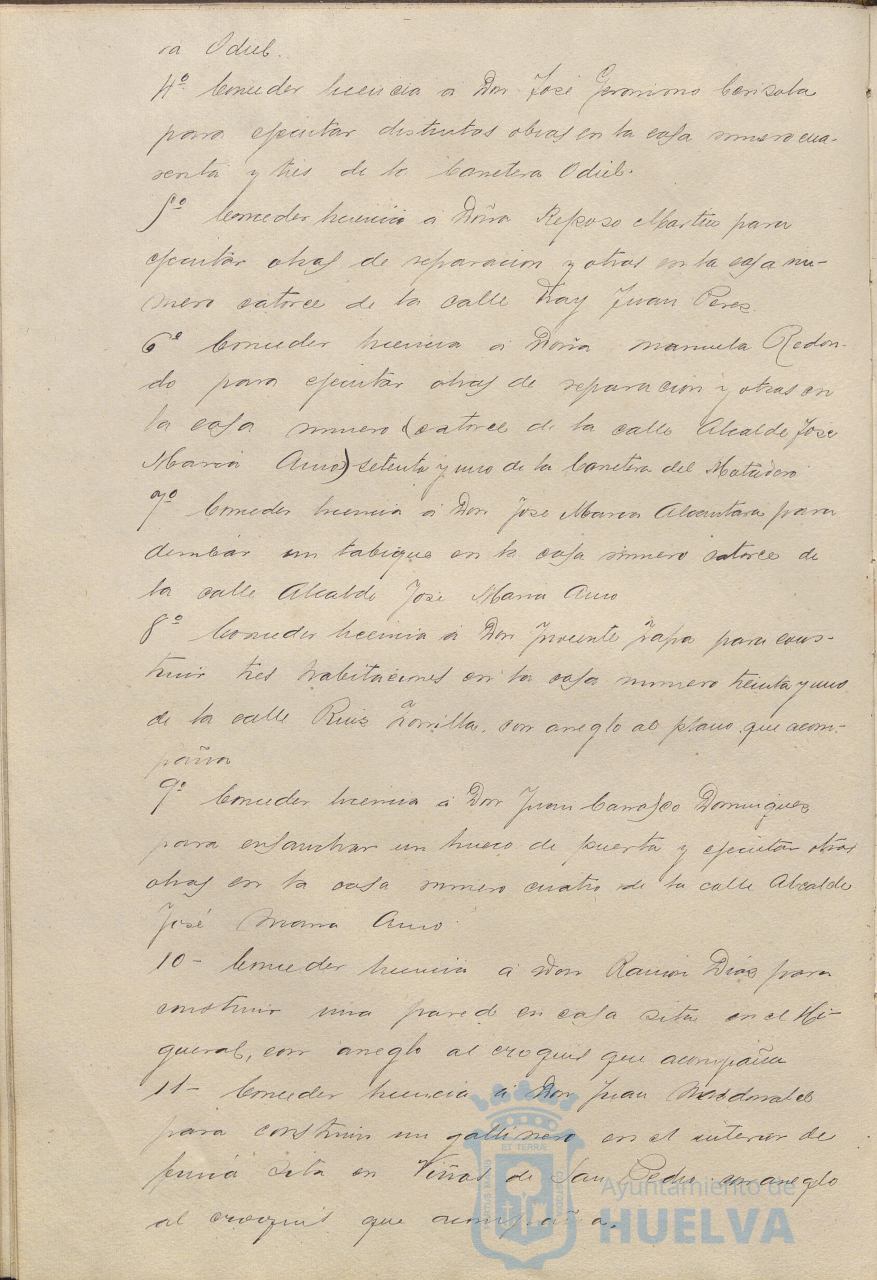 ra Odiel.
4º Conceder licencia á Don José Geronimo Cerisola
para ejecutar distintas obras en la casa numero cua-
renta y tres de la Carretera Odiel.
5º Conceder licencia á Doña Reposo Martin para
ejecutar obras de reparacion y otras en la casa nu-
mero catorce de la calle Fray Juan Perez
6º Conceder licencia á Doña Manuela Redon-
do para ejecutar obras de reparacion y otras en
la casa numero (catorce de la calle Alcalde Jose
Maria Amo) setenta y uno de la Carretera del Matadero
7º Conceder licencia á Don Jose Maria Alcantara para
derribar un tabique en la casa numero catorce de
la calle Alcalde Jose Maria Amo
8º Conceder licencia á Don Zapa para cons-
truir tres habitaciones en la casa numero treinta y uno
de la calle Ruiz Zorrilla, con arreglo al plano que acom-
paña
9º Conceder licencia á Don Juan Carrasco Dominguez
para ensanchar un hueco de puerta y ejecutar otras
obras en la casa numero cuatro de la calle Alcalde
José Maria Amo
10- Conceder licencia á Don Ramon Diaz para
construir una pared en casa sita en el Hi-
gueral, con arreglo al croquis que acompaña
11- Conceder licencia á Don Juan Macdonald
para construir un gallinero en el interior de
finca sita en Viñas de San Pedro con arreglo
al croquis que acompaña.
ET TERRAE
Ayuntamiento de
HUELVA